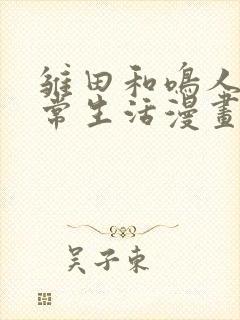 雏田和鳴人
常生活漫畫
吴子東